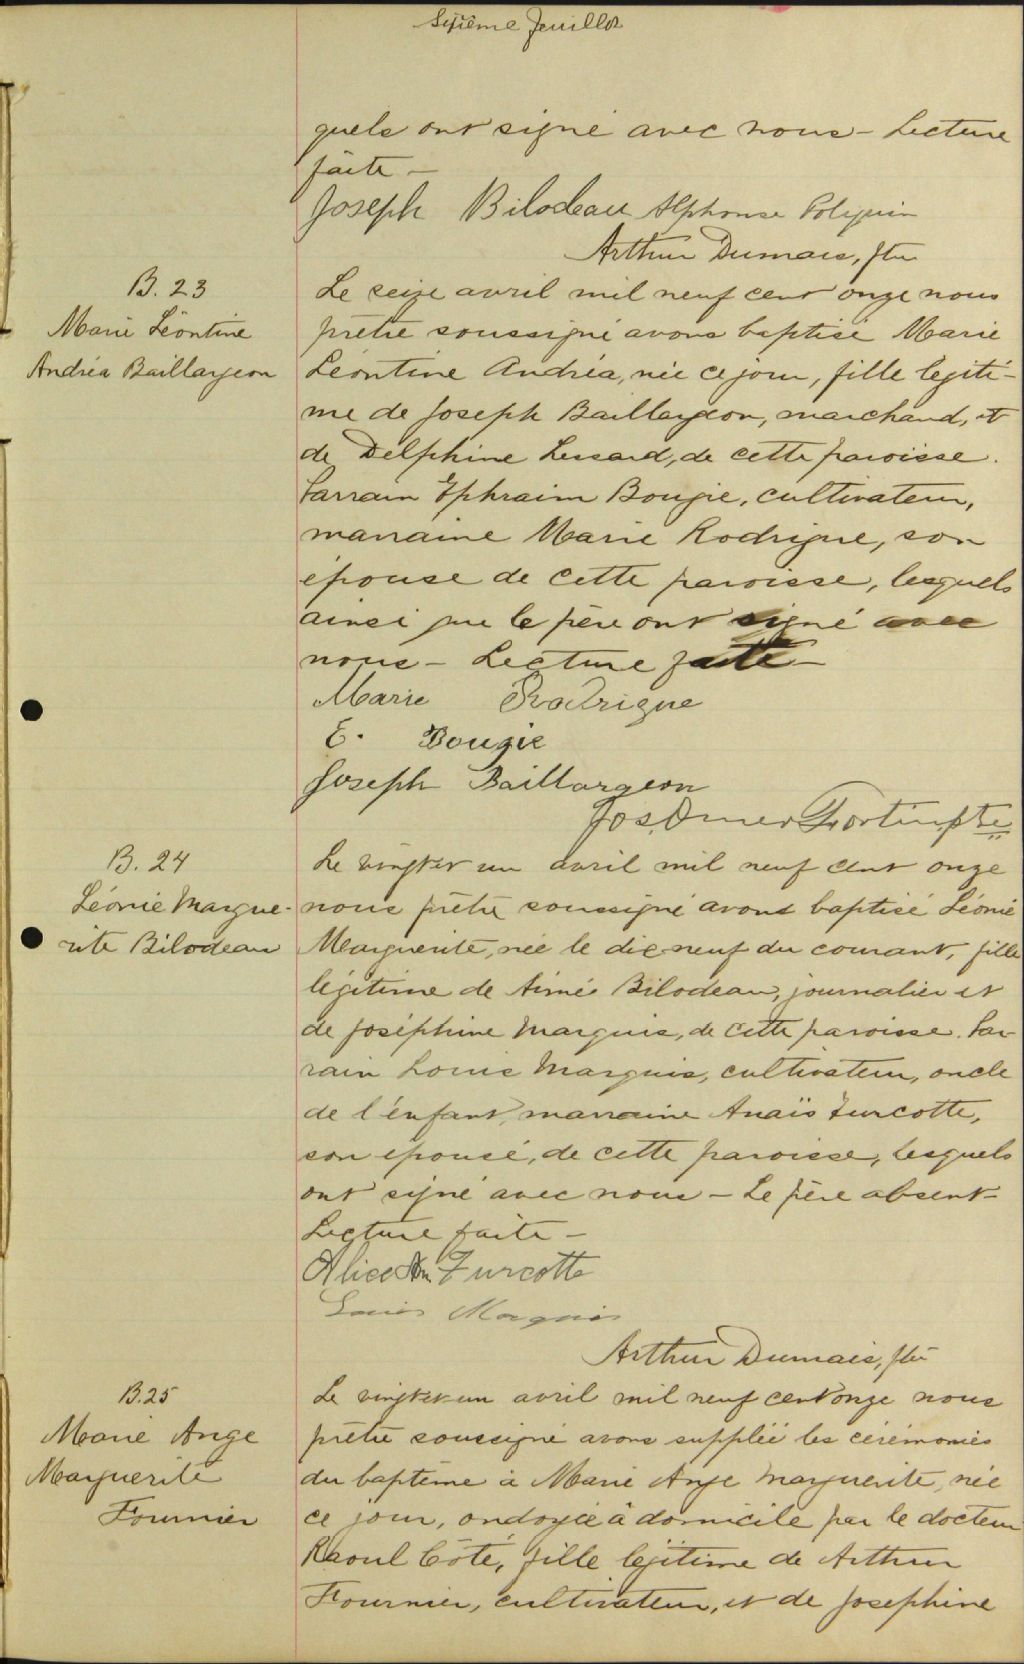 Sixième feuillet
quels ont signé avec nous - Lecture
faite -
Joseph Bilodeau Alphonse Poliquin
Arthur Dumais, ptre
B. 23
Marie Léontine
Andréa Baillargeon
Le seize avril mil neuf cent onze nous
prêtre soussigné avons baptisé Marie
Léontine Andréa, née ce jour, fille légiti-
me de Joseph Baillargeon, marchand, et
de Delphine Lessard, de cette paroisse.
Parrain Ephraim Bougie, cultivateur,
marraine Marie Rodrigue, son
épouse de cette paroisse, lesquels
ainsi que le père ont signé avec
nous - Lecture faite -
Marie Rodrigue
E. Bougie
Joseph Baillargeon
Jos. Omer Fortin ptre
B. 24
Léonie Margue-
rite Bilodeau
Le vingt et un avril mil neuf cent onze
nous prêtre soussigné avons baptisé Léonie
Marguerite, née le dix-neuf du courant, fille
légitime de Aimé Bilodeau, journalier et
de Joséphine Marquis, de cette paroisse. Par-
rain Louis Marquis, cultivateur, oncle
de l'enfant, marraine Anaïs Turcotte,
son épouse, de cette paroisse, lesquels
ont signé avec nous - Le père absent -
Lecture faite -
Alice Turcotte
Louis Marquis
Arthur Dumais, ptre
B. 25
Marie Ange
Marguerite
Fournier
Le vingt et un avril mil neuf cent onze nous
prêtre soussigné avons supplée les cérémonies
du baptême à Marie Ange Marguerite, née
ce jour, ondoyée à domicile par le docteur
Raoul Côté, fille légitime de Arthur
Fournier, cultivateur, et de Joséphine